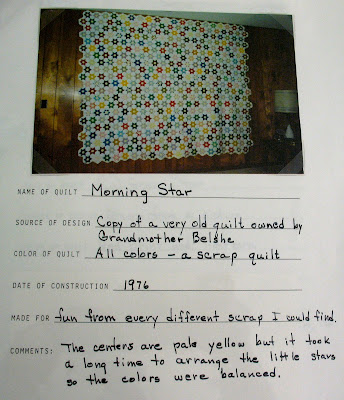 NAME OF QUILT Morning Star
SOURCE OF DESIGN Copy of a very old quilt owned by
Grandmother Belshe
COLOR OF QUILT All colors - a scrap quilt
DATE OF CONSTRUCTION 1976
MADE FOR fun from every different scrap I could find.
COMMENTS: The centers are pale yellow but it took
a long time to arrange the little stars
so the colors were balanced.